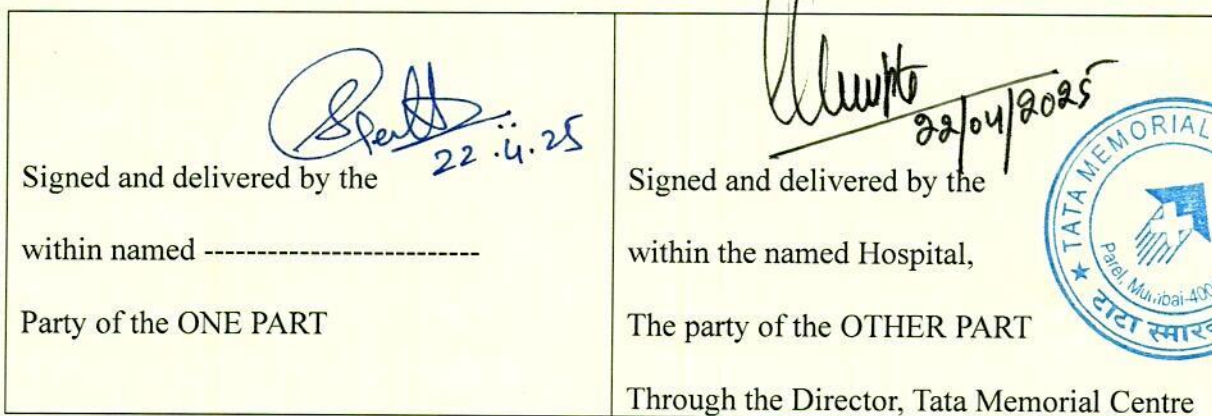 22.4.25
Signed and delivered by the
within named --------------------------
Party of the ONE PART
22/04/2025
Signed and delivered by the
within the named Hospital,
The party of the OTHER PART
Through the Director, Tata Memorial Centre
TATA MEMORIAL
Parel, Mumbai-400
टाटा